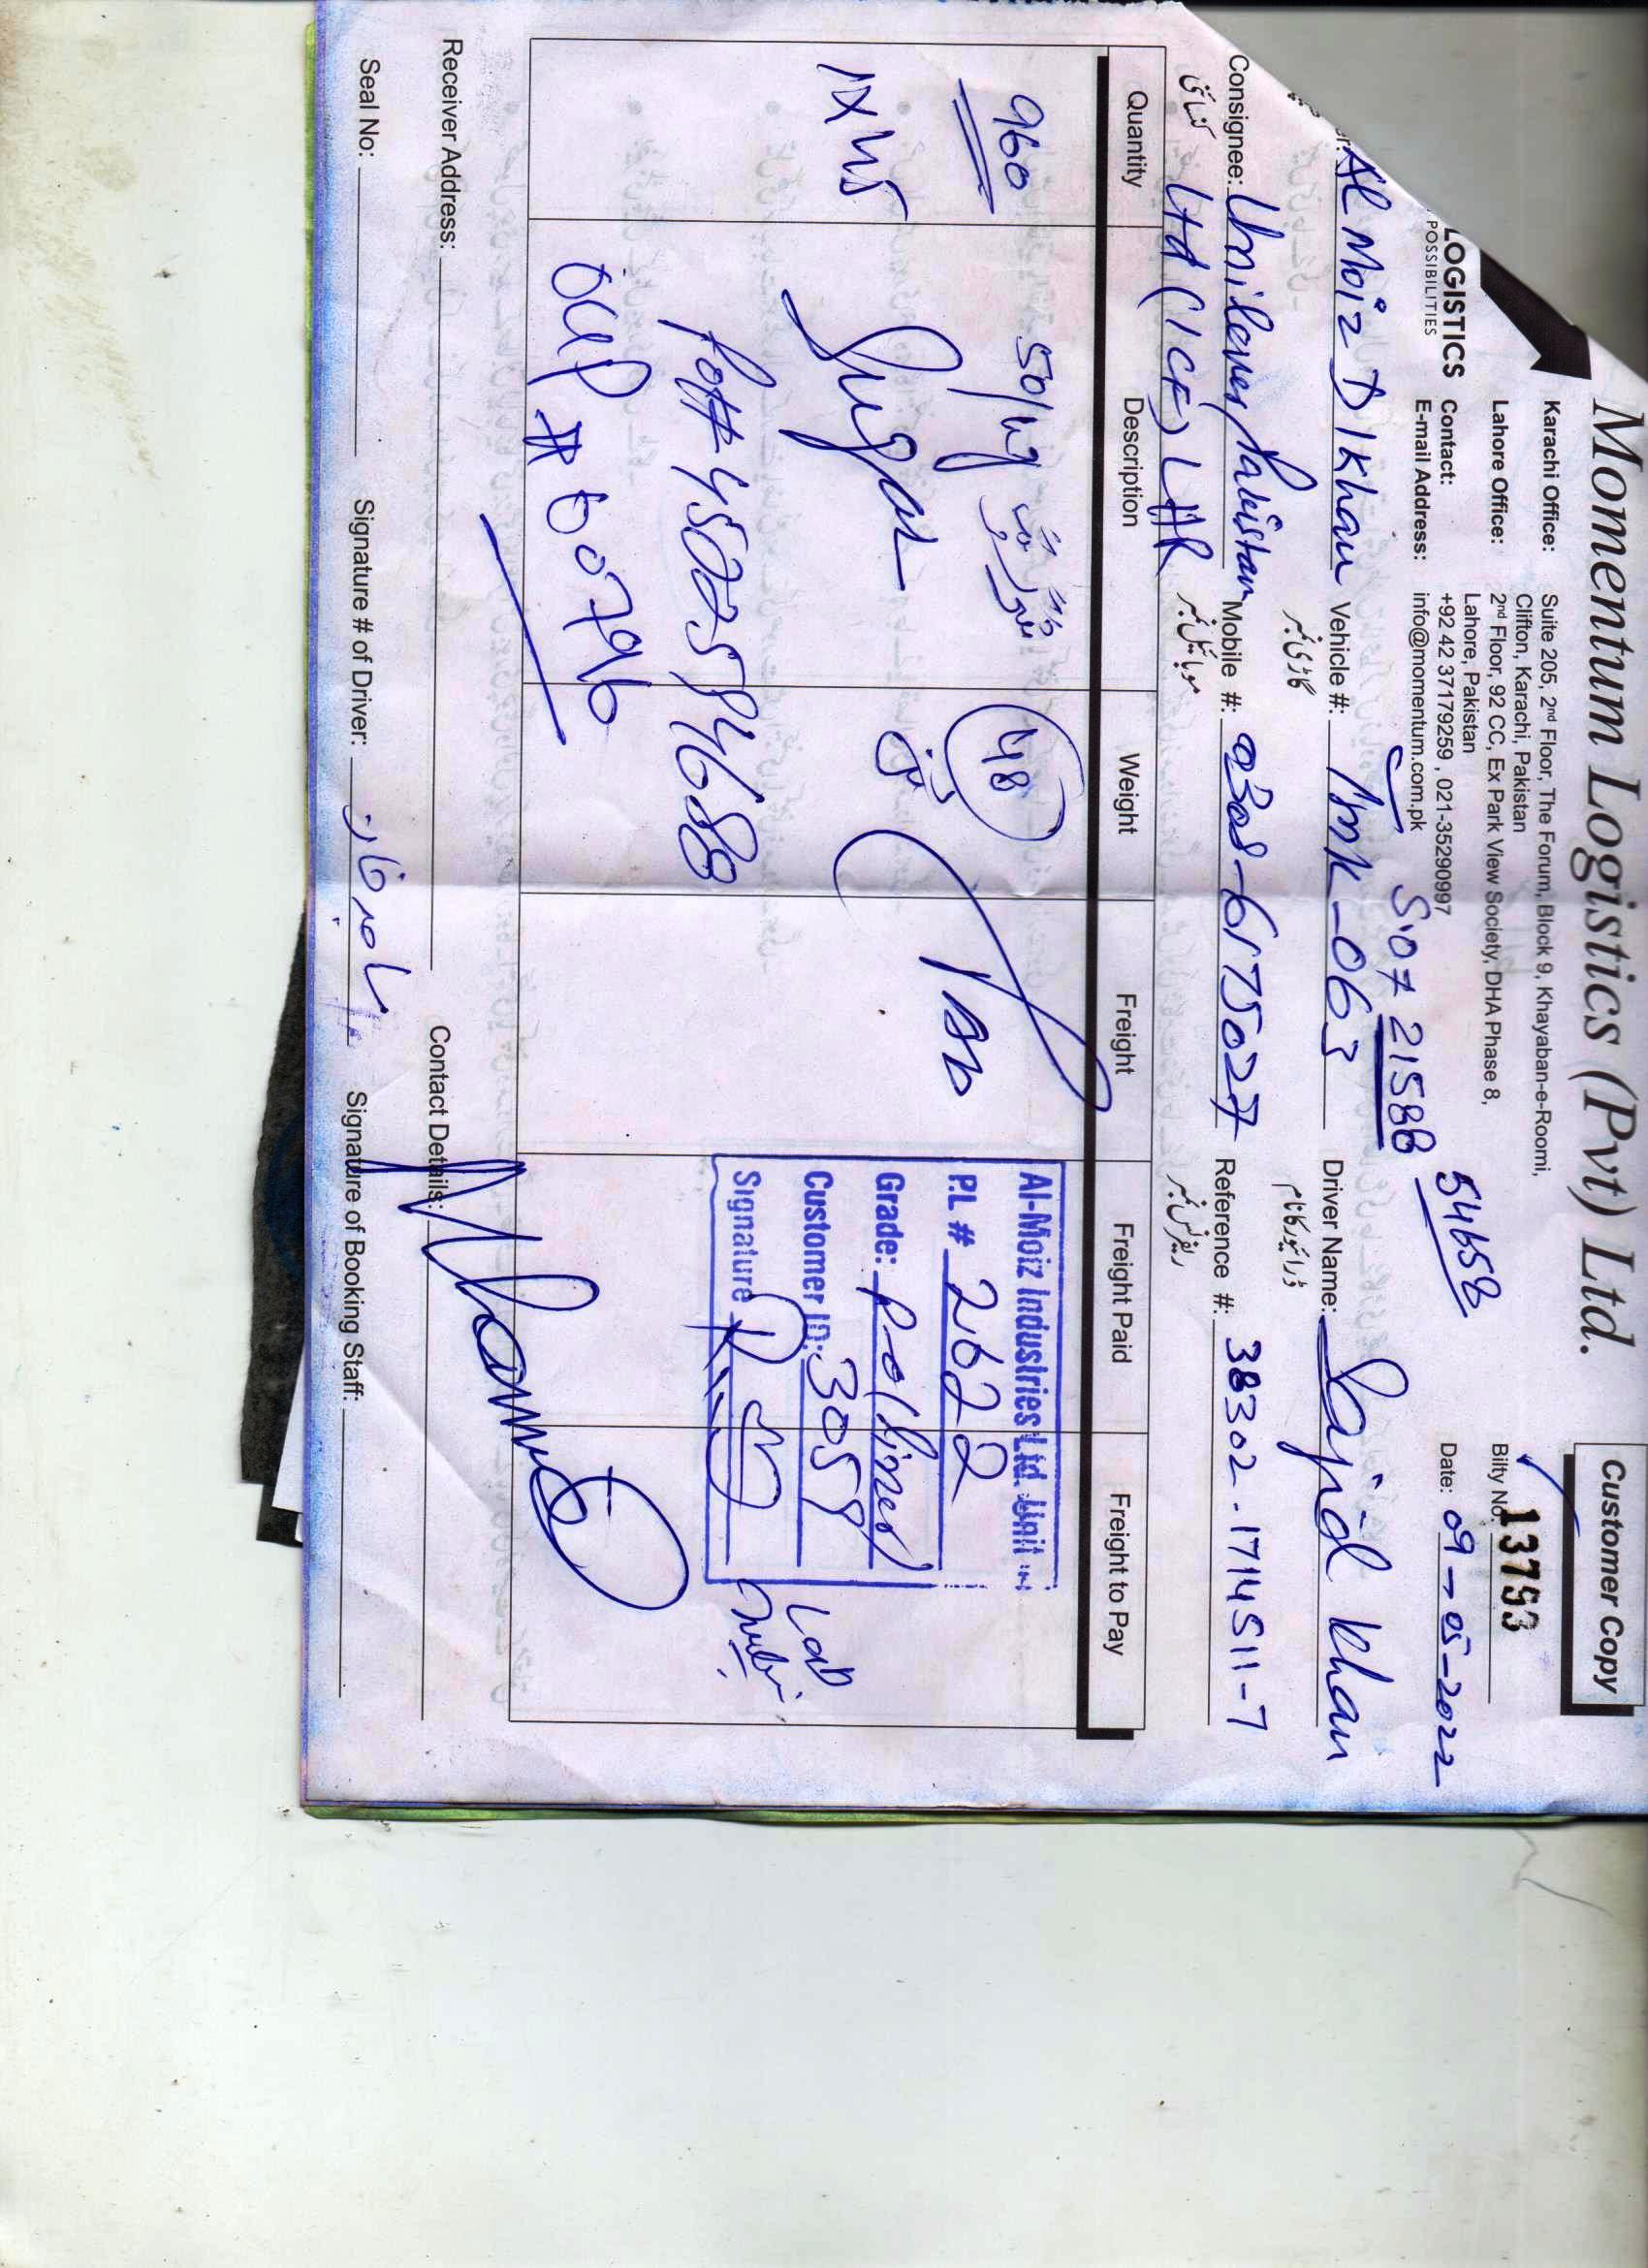 Momentum Logistics (Pvt) Ltd.
Customer Copy
LOGISTICS
POSSIBILITIES
Karachi Office: Suite 205, 2nd Floor, The Forum, Block 9, Khayaban-e-Roomi,
Clifton, Karachi, Pakistan
Lahore Office: 2nd Floor, 92 CC, Ex Park View Society, DHA Phase 8,
Lahore, Pakistan
Contact: +92 42 37179259 , 021-35290997
E-mail Address: info@momentum.com.pk
Bilty No: 13793
54658
Date: 09-05-2022
S07 21588
Al Moiz D I Khan Vehicle #: TMK-063 Driver Name: Sajid Khan
گاڑی نمبر ڈرائیور کا نام
Consignee: Unilever Pakistan Mobile #: 0308-6175027 Reference #: 38302-1714511-7
Ltd (ICF) LHR موبائیل نمبر ریفرنس نمبر
Quantity Description Weight Freight Freight Paid Freight to Pay
960 50/kg 48
ٹن
Sugar
Po# 4502594688
OCP # 60796
Al-Moiz Industries Ltd. Unit
P.L # 2622
Grade:
Customer ID: 3058
Signature
Lab
Receiver Address: Contact Details:
Seal No: Signature # of Driver: Signature of Booking Staff: